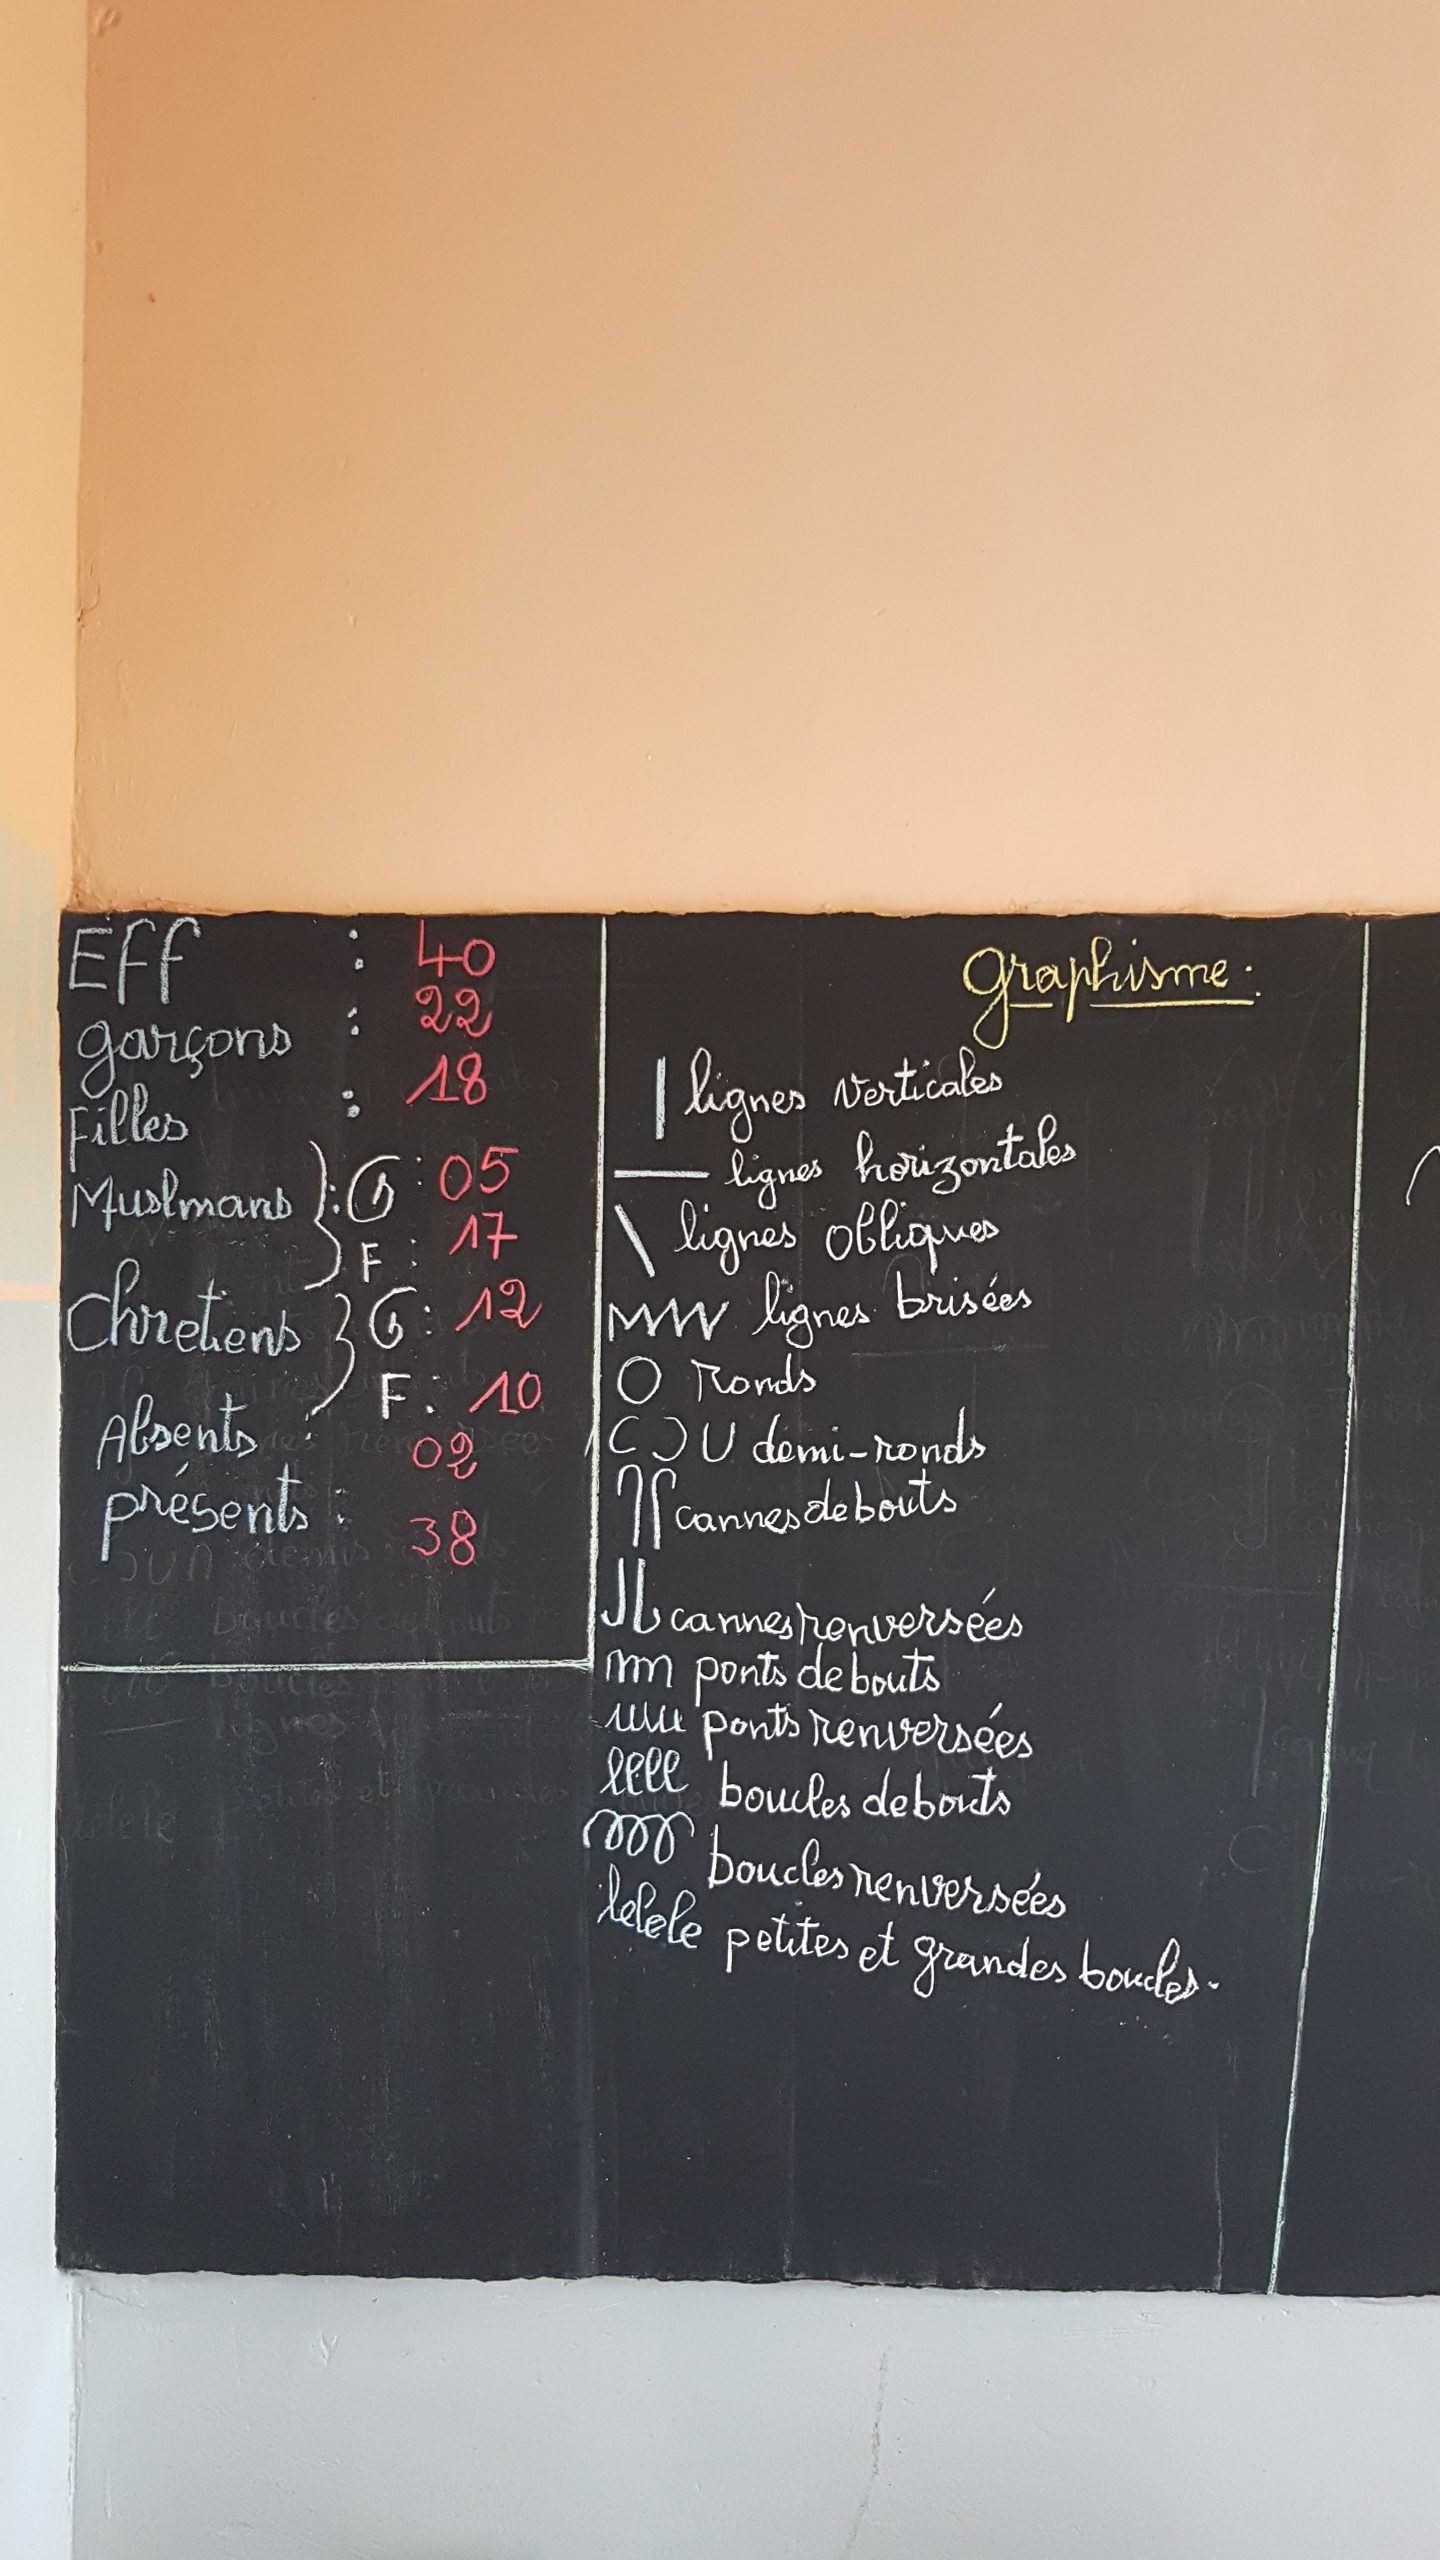 Eff : 40
garçons : 22
Filles : 18
Muslmans } : G : 05
F : 17
Chretiens } G : 12
F : 10
Absents : 02
présents : 38
Graphisme :
lignes verticales
lignes horizontales
lignes obliques
lignes brisées
ronds
demi-ronds
cannes debouts
cannes renversées
ponts debouts
ponts renversées
boucles debouts
boucles renversées
lelele petites et grandes boucles.